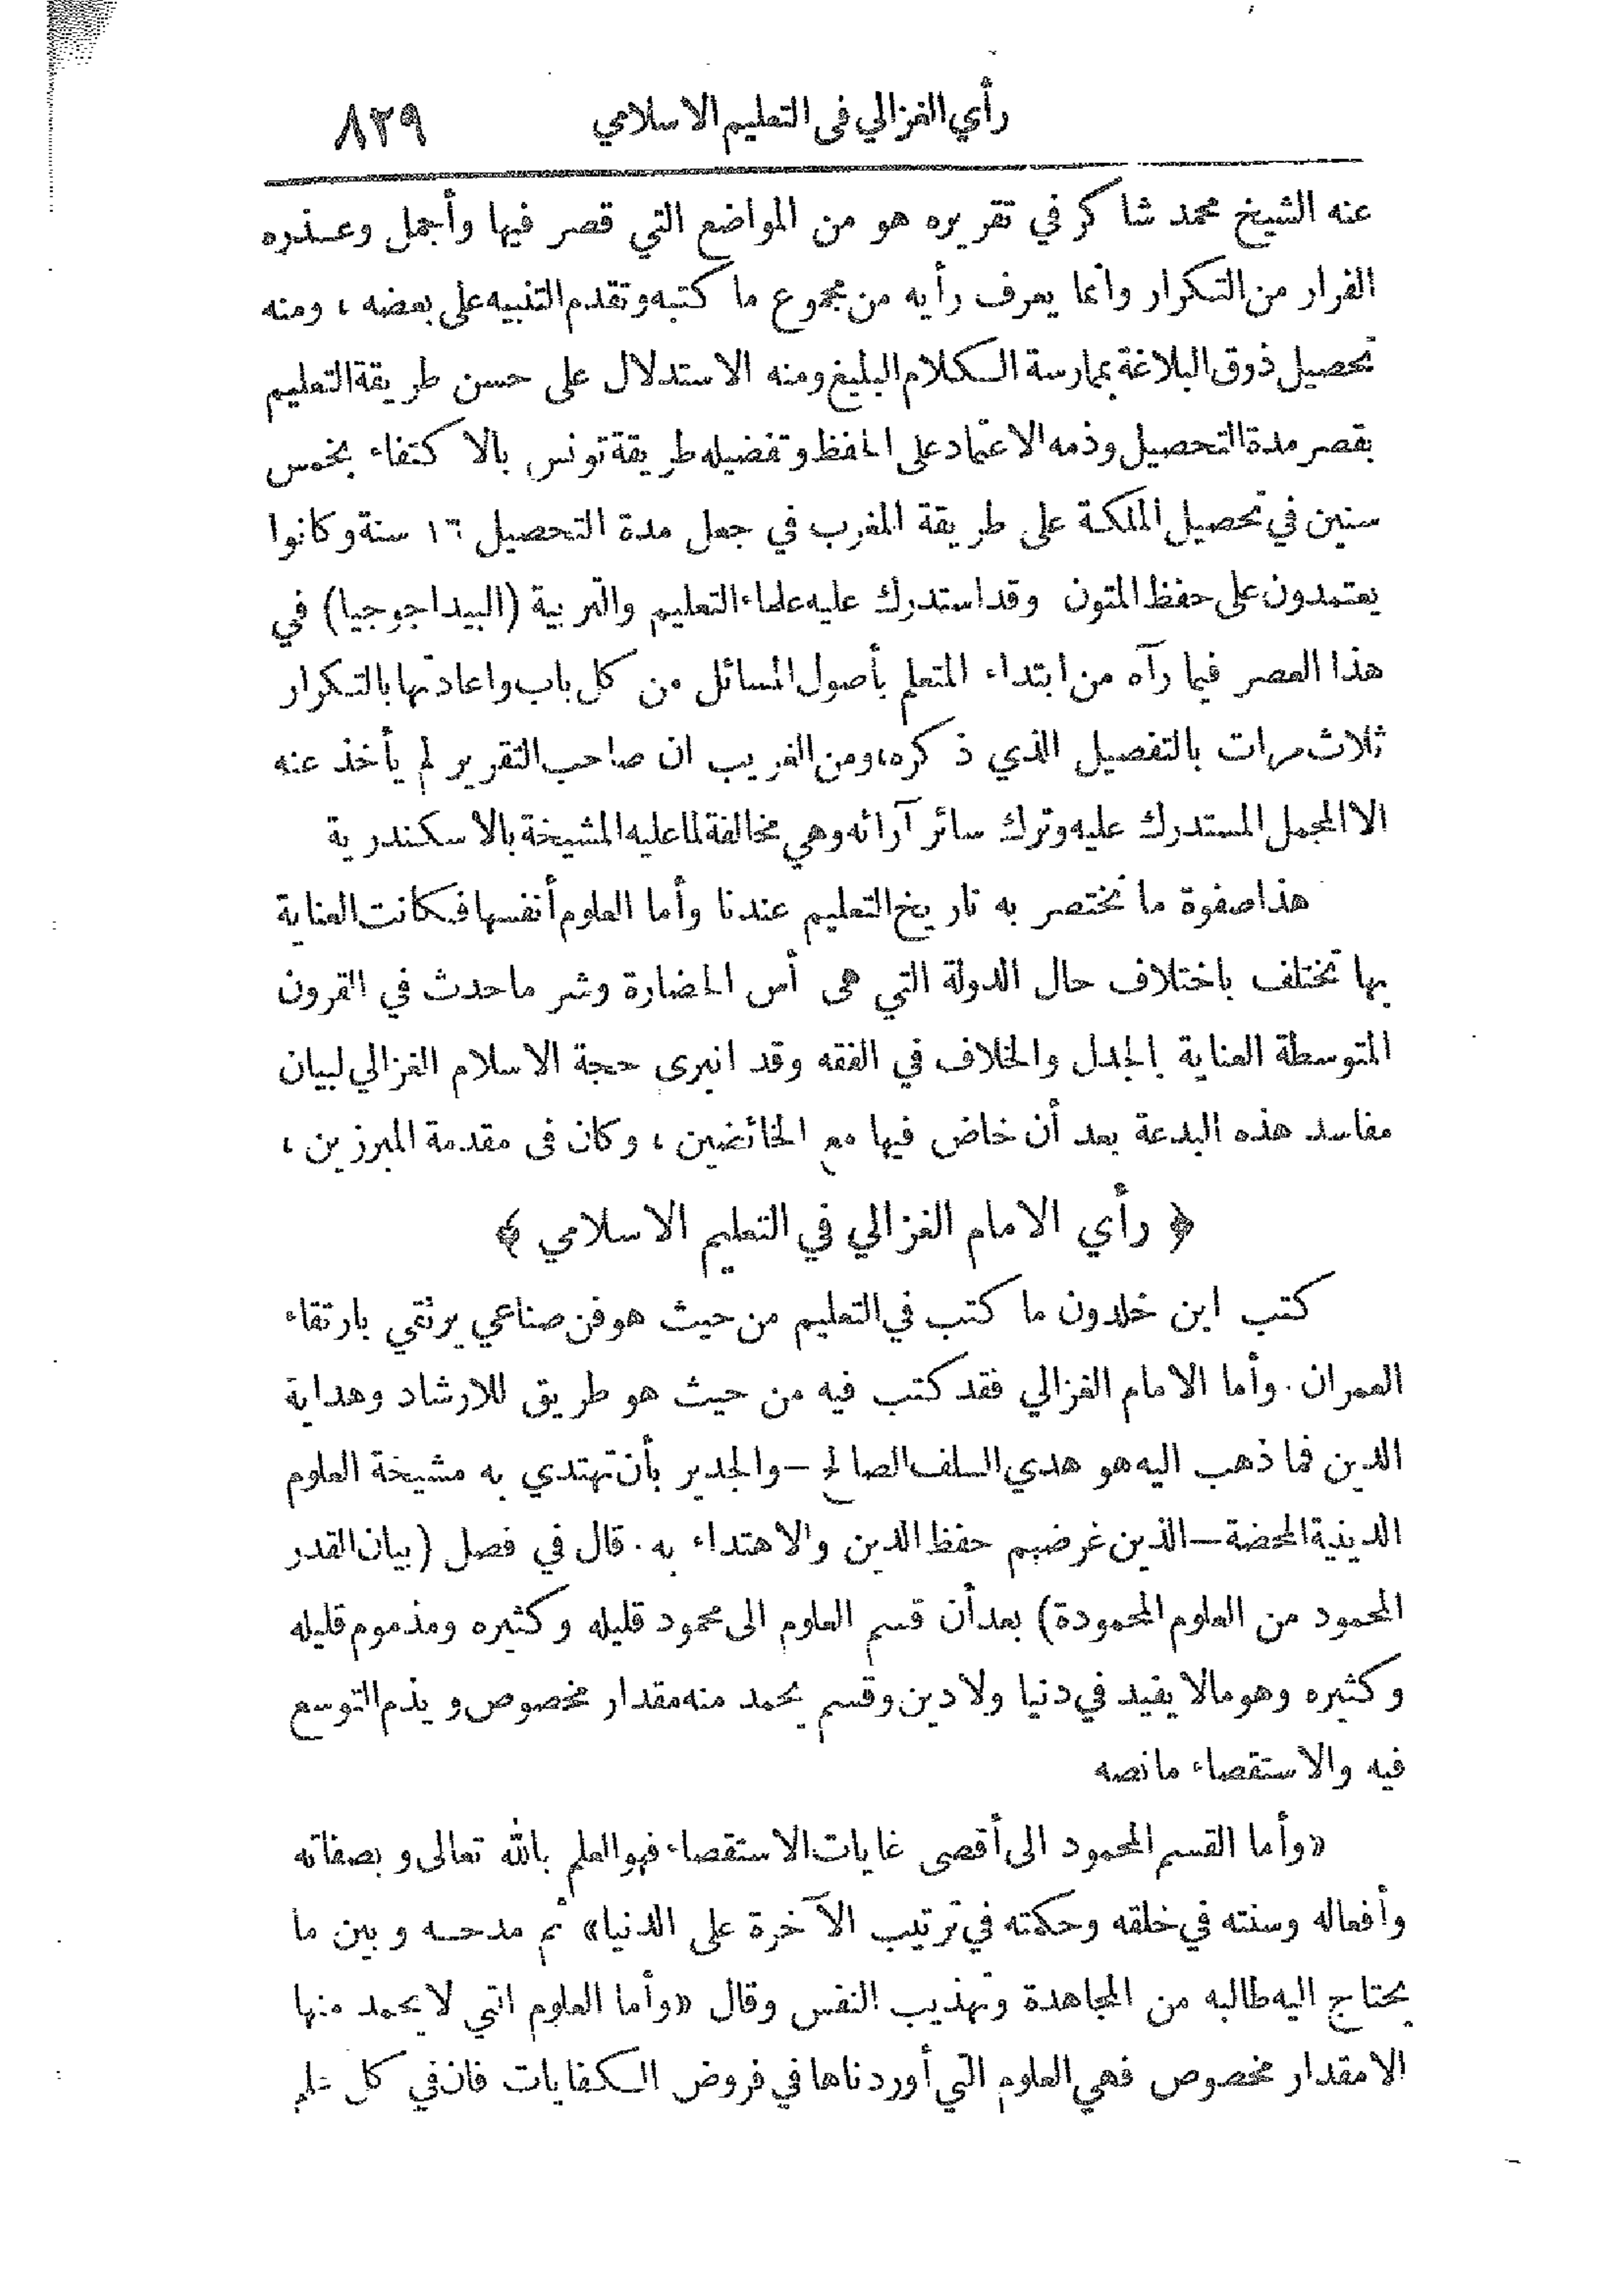 رأي الغزالي فى التعليم الاسلامي ٨٢٩
عنه الشيخ محمد شاكر في تقريره هو من المواضع التي قصر فيها وأجمل وعذره
الفرار من التكرار وانما يعرف رأيه من مجموع ما كتبه وتقدم التنبيه على بعضه ، ومنه
تحصيل ذوق البلاغة بممارسة الكلام البليغ ومنه الاستدلال على حسن طريقة التعليم
بقصر مدة التحصيل وذمه الاعتماد على الحفظ وتفضيله طريقة تونس بالاكتفاء بخمس
سنين في تحصيل الملكة على طريقة المغرب في جعل مدة التحصيل ١٦ سنة وكانوا
يعتمدون على حفظ المتون وقد استدرك عليه علماء التعليم والتربية (البيداجوجيا) في
هذا العصر فيما رآه من ابتداء المتعلم بأصول المسائل من كل باب واعادتها بالتكرار
ثلاث مرات بالتفصيل الذي ذكره، ومن الغريب ان صاحب التقرير لم يأخذ عنه
الا المجمل المستدرك عليه وترك سائر آرائه وهي مخالفة لما عليه المشيخة بالاسكندرية
هذا صفوة ما نختصر به تاريخ التعليم عندنا وأما العلوم أنفسها فكانت العناية
بها تختلف باختلاف حال الدولة التي هى أس الحضارة وشر ما حدث في القرون
المتوسطة العناية بالجدل والخلاف في الفقه وقد انبرى حجة الاسلام الغزالي لبيان
مفاسد هذه البدعة بعد أن خاض فيها مع الخائضين ، وكان فى مقدمة المبرزين ،
﴿ رأي الامام الغزالي في التعليم الاسلامي ﴾
كتب ابن خلدون ما كتب في التعليم من حيث هو فن صناعي يرتقي بارتقاء
العمران . وأما الامام الغزالي فقد كتب فيه من حيث هو طريق للارشاد وهداية
الدين فما ذهب اليه هو هدي السلف الصالح – والجدير بأن تهتدي به مشيخة العلوم
الدينية المحضة – الذين غرضهم حفظ الدين والاهتداء به . قال في فصل (بيان القدر
المحمود من العلوم المحمودة) بعد أن قسم العلوم الى محمود قليله وكثيره ومذموم قليله
وكثيره وهو مالا يفيد في دنيا ولا دين وقسم يحمد منه مقدار مخصوص ويذم التوسع
فيه والاستقصاء ما نصه
«وأما القسم المحمود الى أقصى غايات الاستقصاء فهو العلم بالله تعالى وبصفاته
وأفعاله وسنته في خلقه وحكمته في ترتيب الآخرة على الدنيا» ثم مدحه وبين ما
يحتاج اليه طالبه من المجاهدة وتهذيب النفس وقال «وأما العلوم التي لا يحمد منها
الا مقدار مخصوص فهي العلوم التي أوردناها في فروض الكفايات فان في كل علم